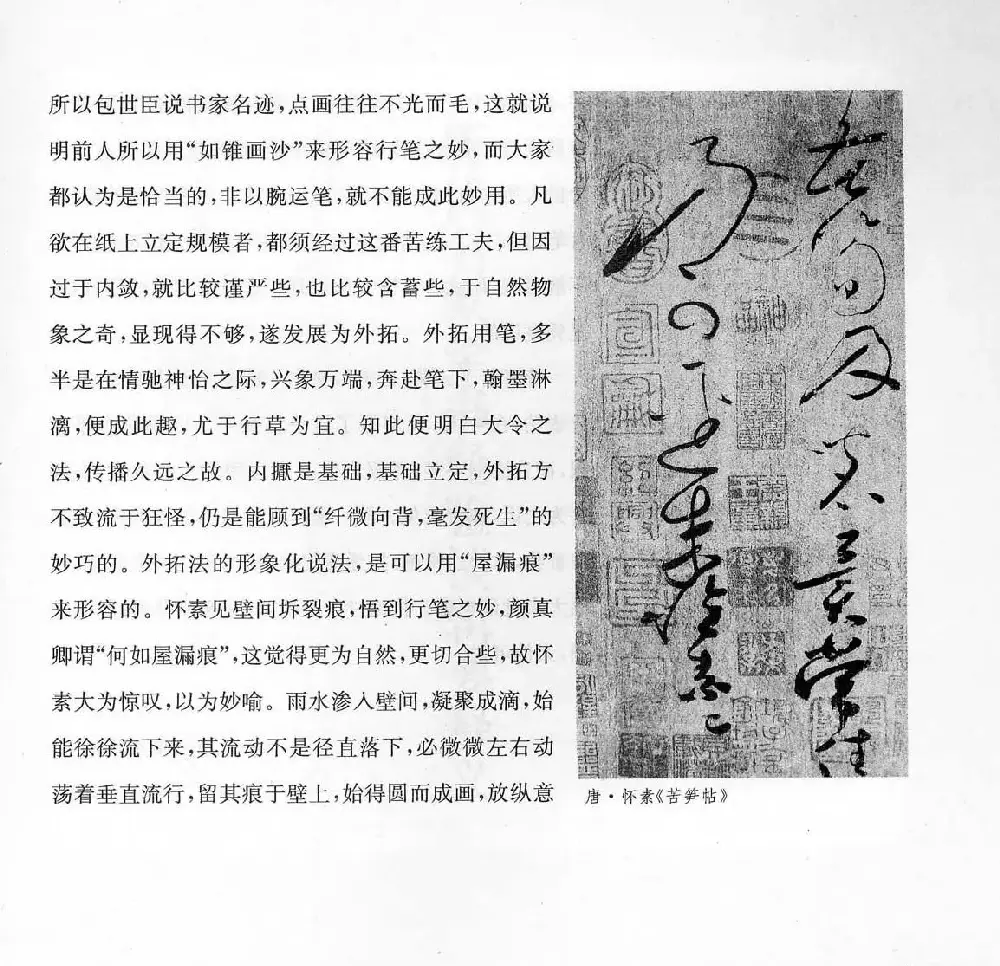 所以包世臣说书家名迹，点画往往不光而毛，这就说
明前人所以用“如锥画沙”来形容行笔之妙，而大家
都认为是恰当的，非以腕运笔，就不能成此妙用。凡
欲在纸上立定规模者，都须经过这番苦练工夫，但因
过于内敛，就比较谨严些，也比较含蓄些，于自然物
象之奇，显现得不够，遂发展为外拓。外拓用笔，多
半是在情驰神怡之际，兴象万端，奔赴笔下，翰墨淋
漓，便成此趣，尤于行草为宜。知此便明白大令之
法，传播久远之故。内擫是基础，基础立定，外拓方
不致流于狂怪，仍是能顾到“纤微向背，毫发死生”的
妙巧的。外拓法的形象化说法，是可以用“屋漏痕”
来形容的。怀素见壁间坼裂痕，悟到行笔之妙，颜真
卿谓“何如屋漏痕”，这觉得更为自然，更切合些，故怀
素大为惊叹，以为妙喻。雨水渗入壁间，凝聚成滴，始
能徐徐流下来，其流动不是径直落下，必微微左右动
荡着垂直流行，留其痕于壁上，始得圆而成画，放纵意
苦笋及茗异常佳
乃可径来怀素上
唐·怀素《苦笋帖》